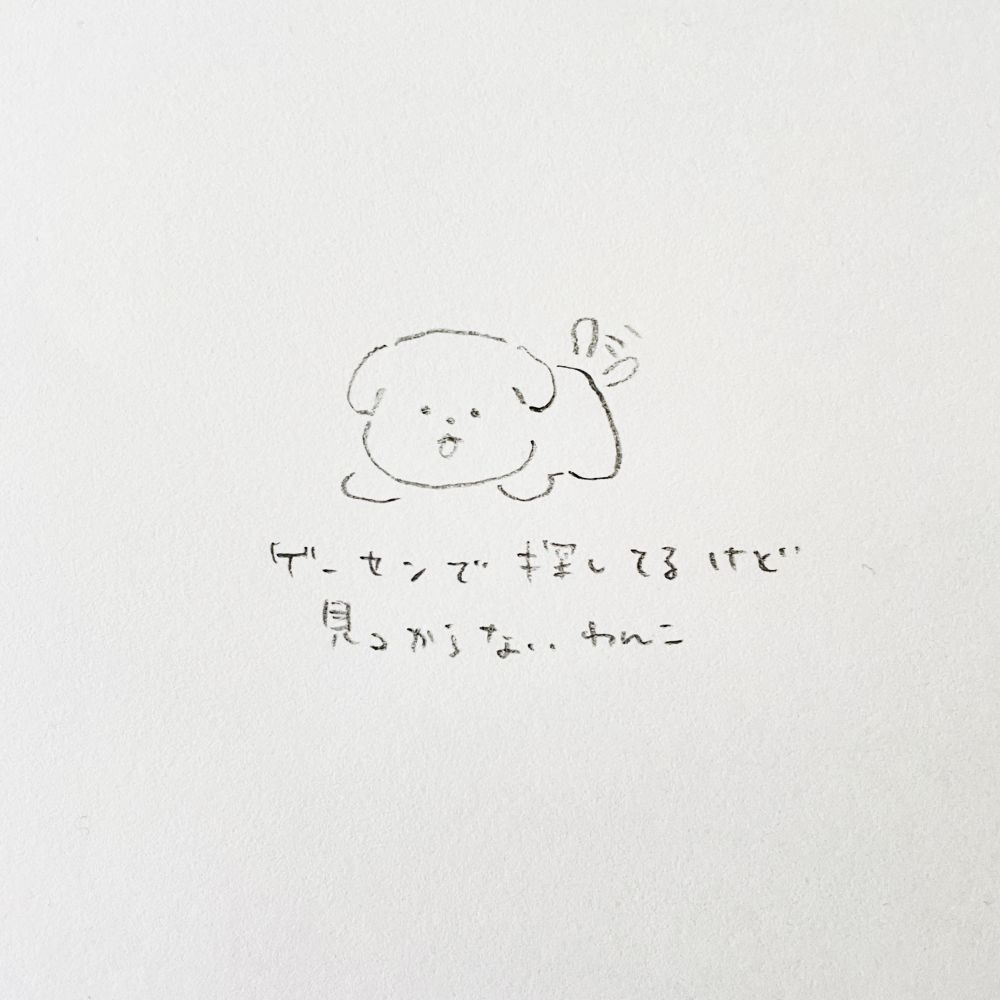 ゲーセンで探してるけど
見つからない わんこ